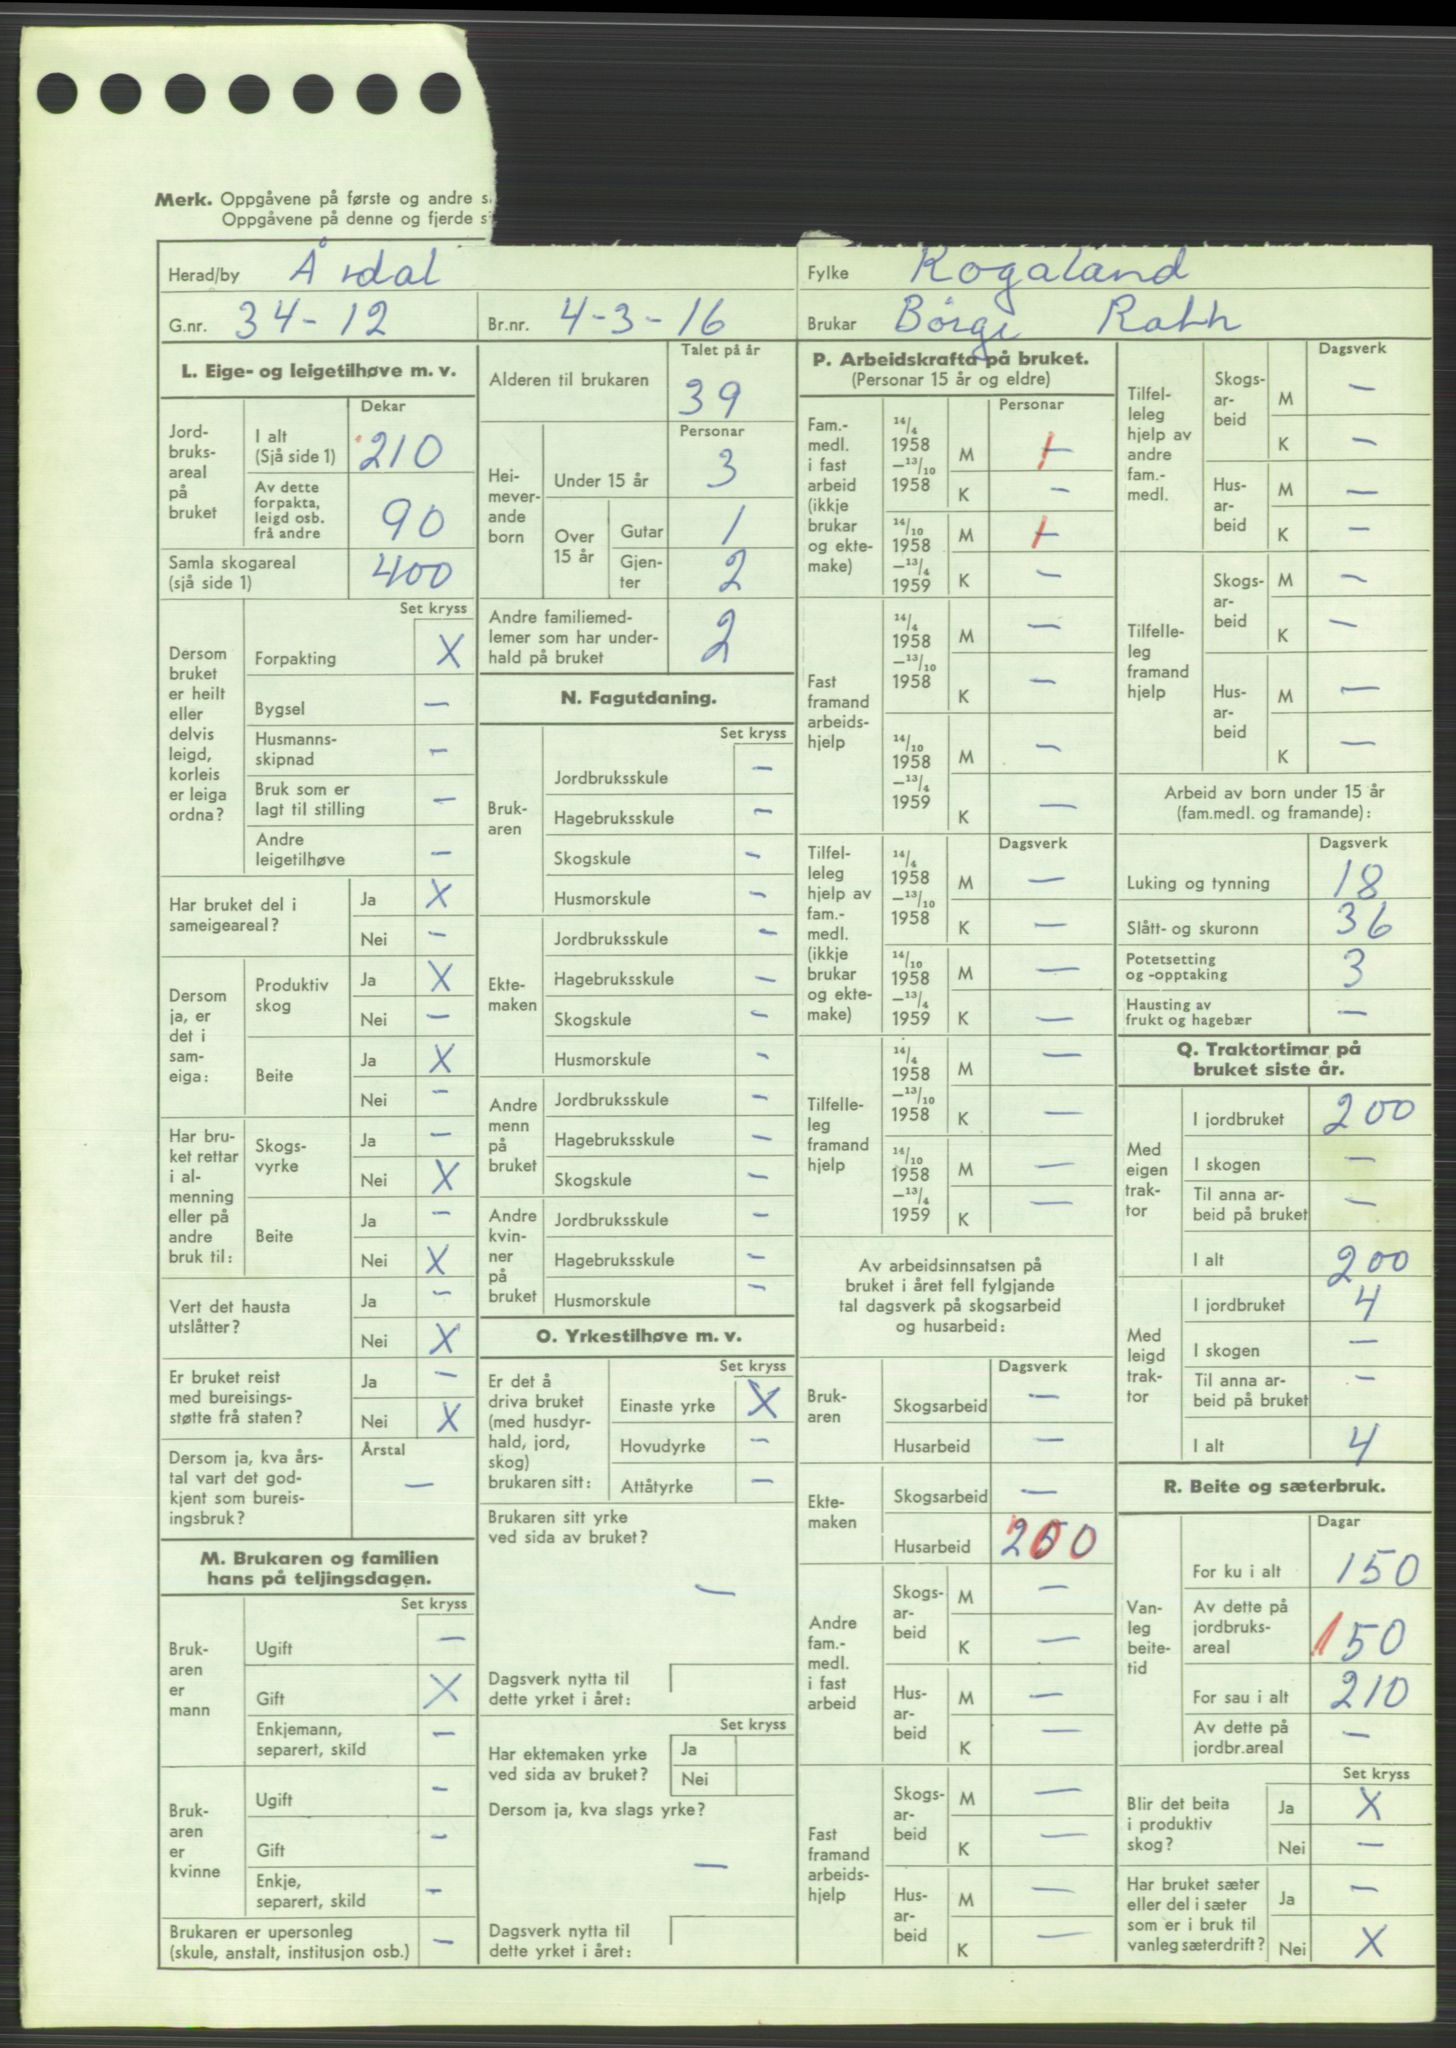 Merk. Oppgåvene på første og andre s
Oppgåvene på denne og fjerde s
Herad/by Årdal
Fylke Rogaland
G.nr. 34-12
Br.nr. 4-3-16
Brukar Børge Rath
L. Eige- og leigetilhøve m. v.
Dekar
Jord-
bruks-
areal
på
bruket
I alt
(Sjå side 1) 210
Av dette
forpakta,
leigd osb.
frå andre 90
Samla skogareal
(sjå side 1) 400
Set kryss
Dersom
bruket
er heilt
eller
delvis
leigd,
korleis
er leiga
ordna?
Forpakting X
Bygsel –
Husmanns-
skipnad –
Bruk som er
lagt til stilling –
Andre
leigetilhøve –
Har bruket del i
sameigeareal?
Ja X
Nei –
Dersom
ja, er
det i
sam-
eiga:
Produktiv
skog
Ja X
Nei –
Beite
Ja X
Nei –
Har bru-
ket rettar
i al-
menning
eller på
andre
bruk til:
Skogs-
vyrke
Ja –
Nei X
Beite
Ja –
Nei X
Vert det hausta
utslåtter?
Ja –
Nei X
Er bruket reist
med bureisings-
støtte frå staten?
Ja –
Nei X
Dersom ja, kva års-
tal vart det god-
kjent som bureis-
ingsbruk?
Årstal
–
M. Brukaren og familien
hans på teljingsdagen.
Set kryss
Bruk-
aren
er
mann
Ugift –
Gift X
Enkjemann,
separert, skild –
Bruk-
aren
er
kvinne
Ugift –
Gift –
Enkje,
separert, skild –
Brukaren er upersonleg
(skule, anstalt, institusjon osb.) –
Talet på år
Alderen til brukaren 39
Personar
Hei-
mever-
ande
born
Under 15 år 3
Over
15 år
Gutar 1
Gjen-
ter 2
Andre familiemed-
lemer som har under-
hald på bruket 2
N. Fagutdaning.
Set kryss
Bruk-
aren
Jordbruksskule –
Hagebruksskule –
Skogskule –
Husmorskule –
Ekte-
maken
Jordbruksskule –
Hagebruksskule –
Skogskule –
Husmorskule –
Andre
menn
på
bruket
Jordbruksskule –
Hagebruksskule –
Skogskule –
Andre
kvin-
ner
på
bruket
Jordbruksskule –
Hagebruksskule –
Husmorskule –
O. Yrkestilhøve m. v.
Set kryss
Er det å
driva bruket
(med husdyr-
hald, jord,
skog)
brukaren sitt:
Einaste yrke X
Hovudyrke –
Attåtyrke –
Brukaren sitt yrke
ved sida av bruket?
–
Dagsverk nytta til
dette yrket i året:
Set kryss
Har ektemaken yrke
ved sida av bruket?
Ja
Nei
Dersom ja, kva slags yrke?
–
Dagsverk nytta til
dette yrket i året:
P. Arbeidskrafta på bruket.
(Personar 15 år og eldre)
Personar
Fam.-
medl.
i fast
arbeid
(ikkje
brukar
og ekte-
make)
14/4
1958
–13/10
1958
M 1
K –
14/10
1958
–13/4
1959
M 1
K –
Fast
framand
arbeids-
hjelp
14/4
1958
–13/10
1958
M –
K –
14/10
1958
–13/4
1959
M –
K –
Dagsverk
Tilfel-
leleg
hjelp av
fam.-
medl.
(ikkje
brukar
og ekte-
make)
14/4
1958
–13/10
1958
M –
K –
14/10
1958
–13/4
1959
M –
K –
Tilfelle-
leg
framand
hjelp
14/4
1958
–13/10
1958
M –
K –
14/10
1958
–13/4
1959
M –
K –
Av arbeidsinnsatsen på
bruket i året fell fylgjande
tal dagsverk på skogsarbeid
og husarbeid:
Dagsverk
Bruk-
aren
Skogsarbeid –
Husarbeid –
Ekte-
maken
Skogsarbeid –
Husarbeid 200
Andre
fam.-
medl.
i fast
arbeid
Skogs-
ar-
beid
M –
K –
Hus-
ar-
beid
M –
K –
Fast
framand
arbeids-
hjelp
Skogs-
ar-
beid
M –
K –
Hus-
ar-
beid
M –
K –
Dagsverk
Tilfel-
leleg
hjelp av
andre
fam.-
medl.
Skogs-
ar-
beid
M –
K –
Hus-
ar-
beid
M –
K –
Tilfelle-
leg
framand
hjelp
Skogs-
ar-
beid
M –
K –
Hus-
ar-
beid
M –
K –
Arbeid av born under 15 år
(fam.medl. og framande):
Dagsverk
Luking og tynning 18
Slått- og skuronn 36
Potetsetting
og -opptaking 3
Hausting av
frukt og hagebær –
Q. Traktortimar på
bruket siste år.
Med
eigen
trak-
tor
I jordbruket 200
I skogen –
Til anna ar-
beid på bruket –
I alt 200
Med
leigd
trak-
tor
I jordbruket 4
I skogen –
Til anna ar-
beid på bruket –
I alt 4
R. Beite og sæterbruk.
Dagar
Van-
leg
beite-
tid
For ku i alt 150
Av dette på
jordbruks-
areal 150
For sau i alt 210
Av dette på
jordbr.areal –
Set kryss
Blir det beita
i produktiv
skog?
Ja X
Nei –
Har bruket sæter
eller del i sæter
som er i bruk til
vanleg sæterdrift?
Ja –
Nei X